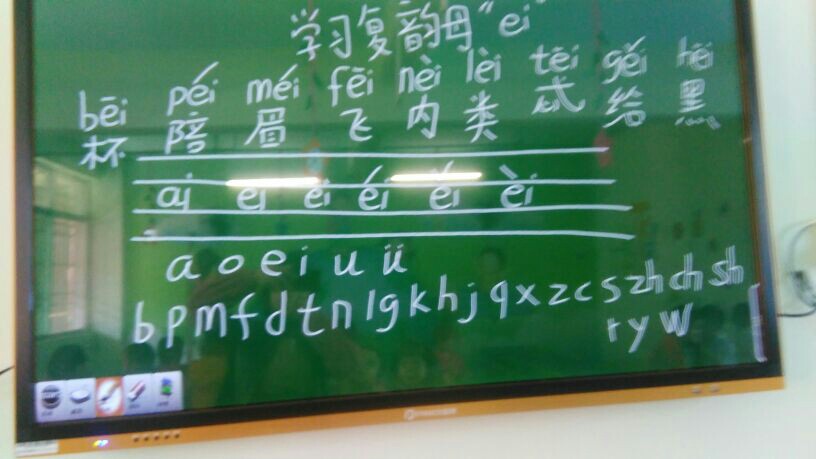 学习复韵母"ei"
bēi péi méi fēi nèi lèi tēi gěi hēi
杯 陪 眉 飞 内 类 忒 给 黑
ai ei ēi éi ěi èi
a o e i u ü
b p m f d t n l g k h j q x z c s zh ch sh
r y w